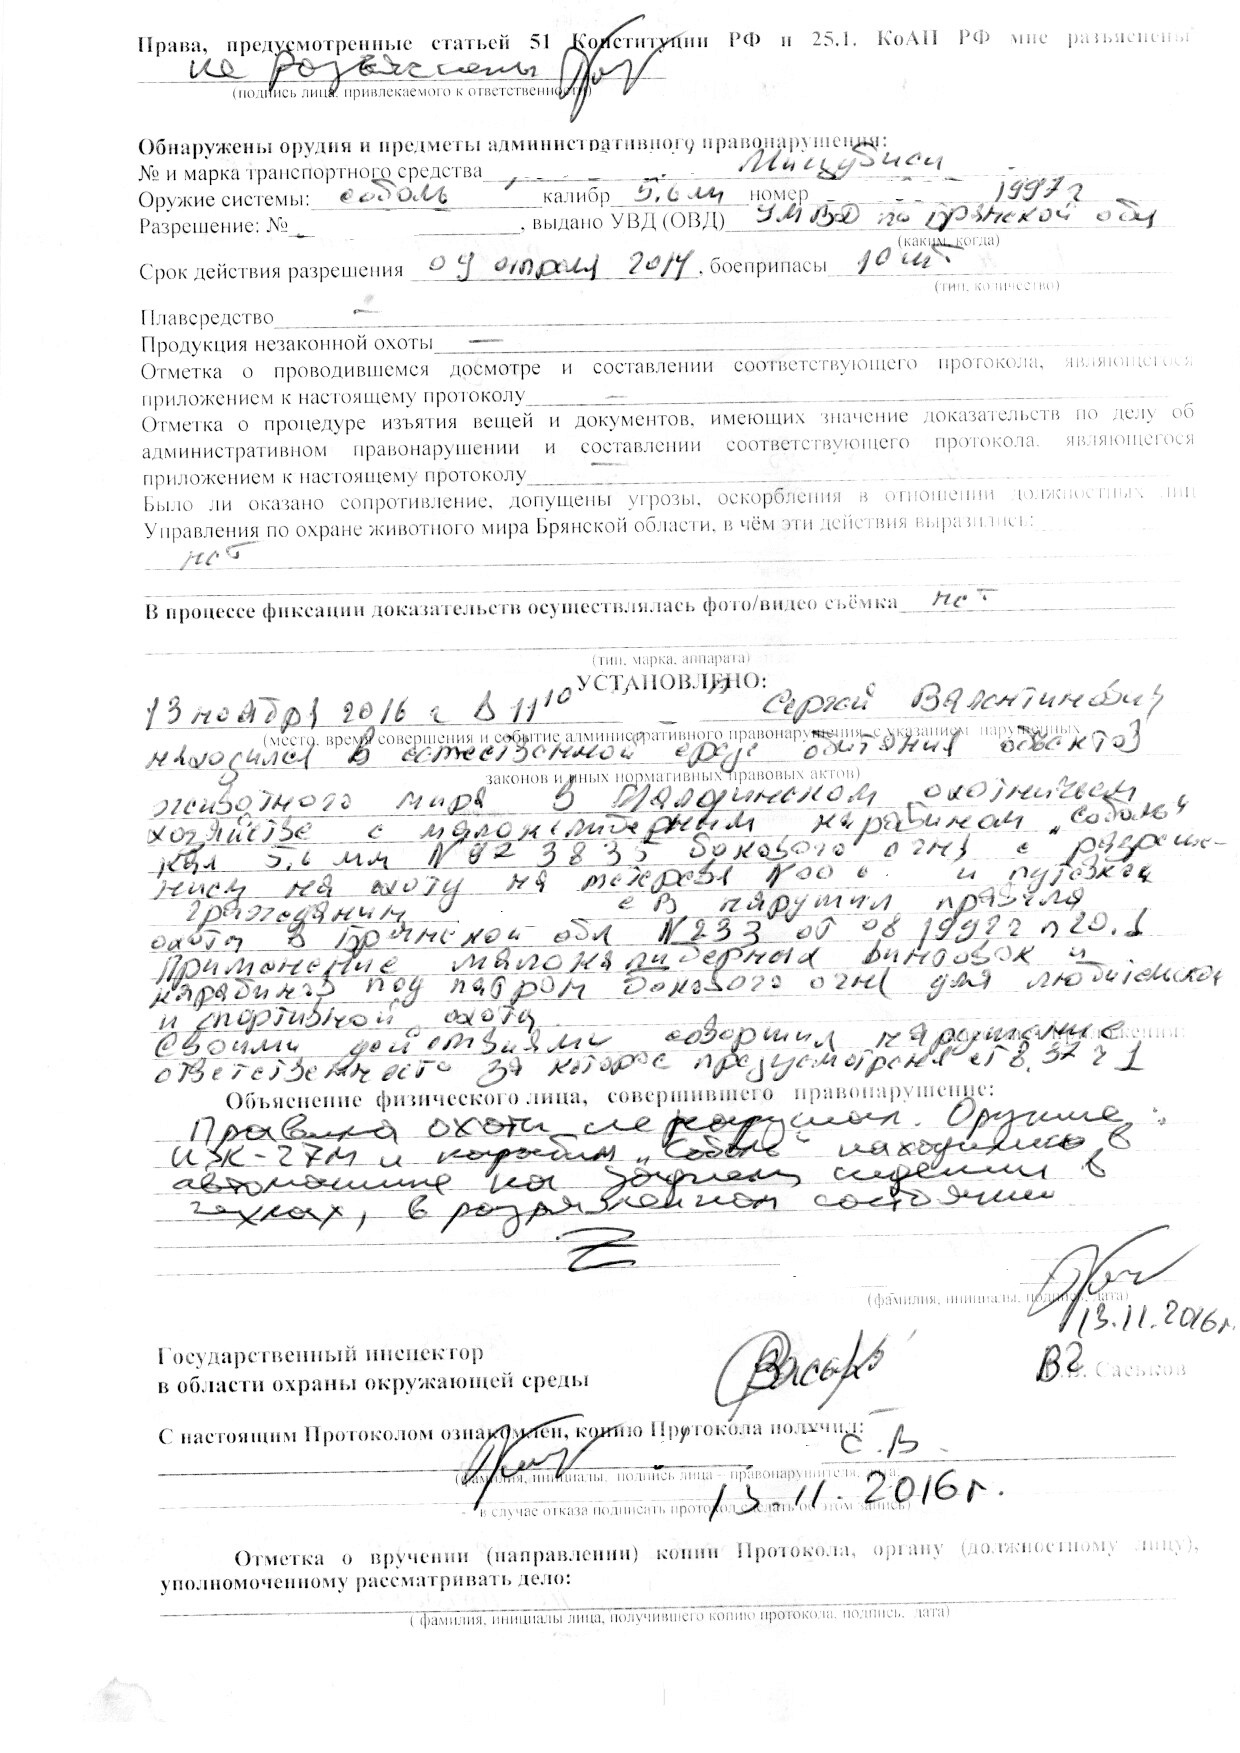 Права, предусмотренные статьей 51 Конституции РФ и 25.1. КоАП РФ мне разъяснены
не разъяснены
(подпись лица, привлекаемого к ответственности)
Обнаружены орудия и предметы административного правонарушения:
№ и марка транспортного средства Мицубиси
Оружие системы: соболь калибр 5,6 мм номер 1997 г
Разрешение: № , выдано УВД (ОВД) УМВД по Брянской обл
(каким, когда)
Срок действия разрешения 09 апреля 2017, боеприпасы 10 шт.
(тип, количество)
Плавсредство –
Продукция незаконной охоты —
Отметка о проводившемся досмотре и составлении соответствующего протокола, являющегося
приложением к настоящему протоколу —
Отметка о процедуре изъятия вещей и документов, имеющих значение доказательств по делу об
административном правонарушении и составлении соответствующего протокола, являющегося
приложением к настоящему протоколу —
Было ли оказано сопротивление, допущены угрозы, оскорбления в отношении должностных лиц
Управления по охране животного мира Брянской области, в чём эти действия выразились:
нет
В процессе фиксации доказательств осуществлялась фото/видео съёмка нет
(тип, марка, аппарата)
УСТАНОВЛЕНО:
13 ноября 2016 г в 11 10 Сергей Валентинович
(место, время совершения и событие административного правонарушения, с указанием нарушенных
находился в естественной среде обитания объектов
законов и иных нормативных правовых актов)
животного мира в охотничьем
хозяйстве с малокалиберным карабином „Соболь"
кал 5,6 мм бокового огня с разреше-
нием на охоту на и путевка
гражданин с В нарушил правила
охоты в Брянской обл №233 от 08 1992 г п 20.1
Применение малокалиберных винтовок и
карабинов под патрон бокового огня для любительской
и спортивной охоты
Своими действиями совершил нарушение
ответственность за которое предусмотрена ст 8.37 ч 1
Объяснение физического лица, совершившего правонарушение:
Правила охоты не нарушал. Оружие:
ИЖ-27М и карабин „Соболь" находились в
автомашине на заднем сидении в
чехлах, в разряженном состоянии
(фамилия, инициалы, подпись, дата)
13.11.2016г.
Государственный инспектор
в области охраны окружающей среды В.В. Саськов
С настоящим Протоколом ознакомлен, копию Протокола получил:
С.В.
(фамилия, инициалы, подпись лица – правонарушителя, дата
13.11.2016г.
- в случае отказа подписать протокол сделать об этом запись)
Отметка о вручении (направлении) копии Протокола, органу (должностному лицу),
уполномоченному рассматривать дело:
( фамилия, инициалы лица, получившего копию протокола, подпись, дата)